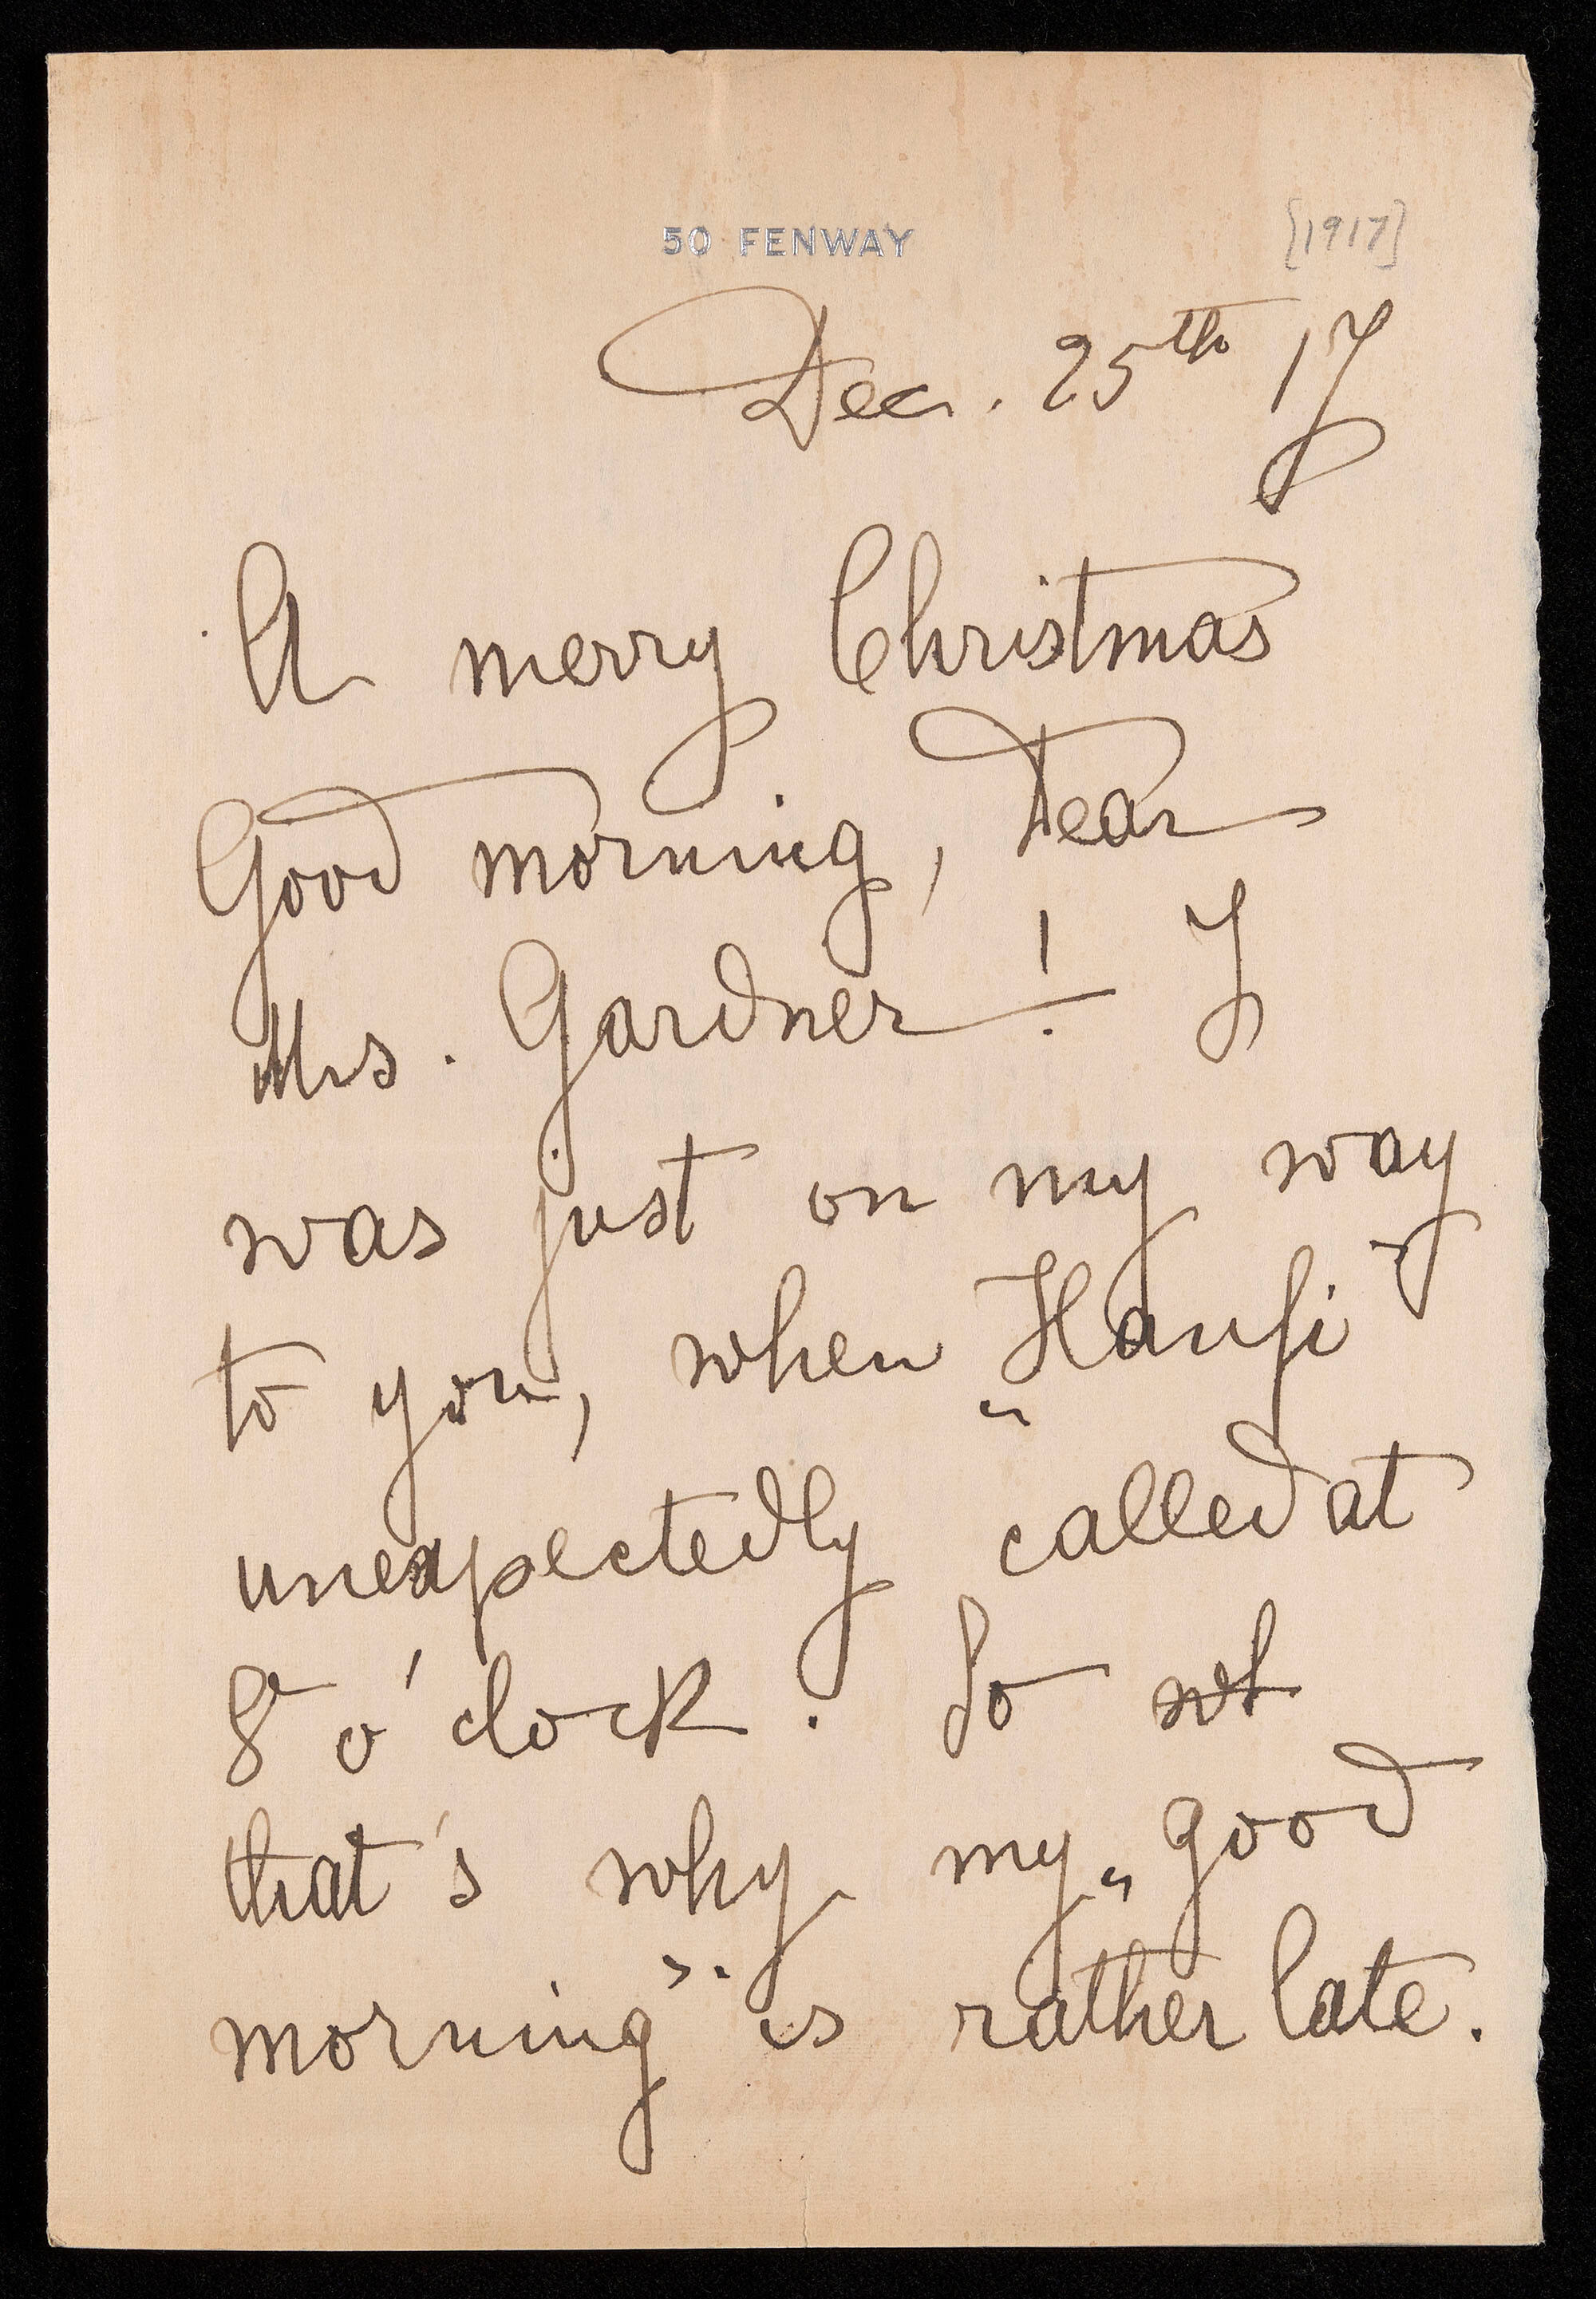 50 FENWAY
[1917]
Dec. 25th 17
A merry Christmas
Good morning, Dear
Mrs. Gardner! I
was just on my way
to you, when „Hanfi"
unexpectedly called at
8 o'clock. So wh
that's why my „good
morning" is rather late.